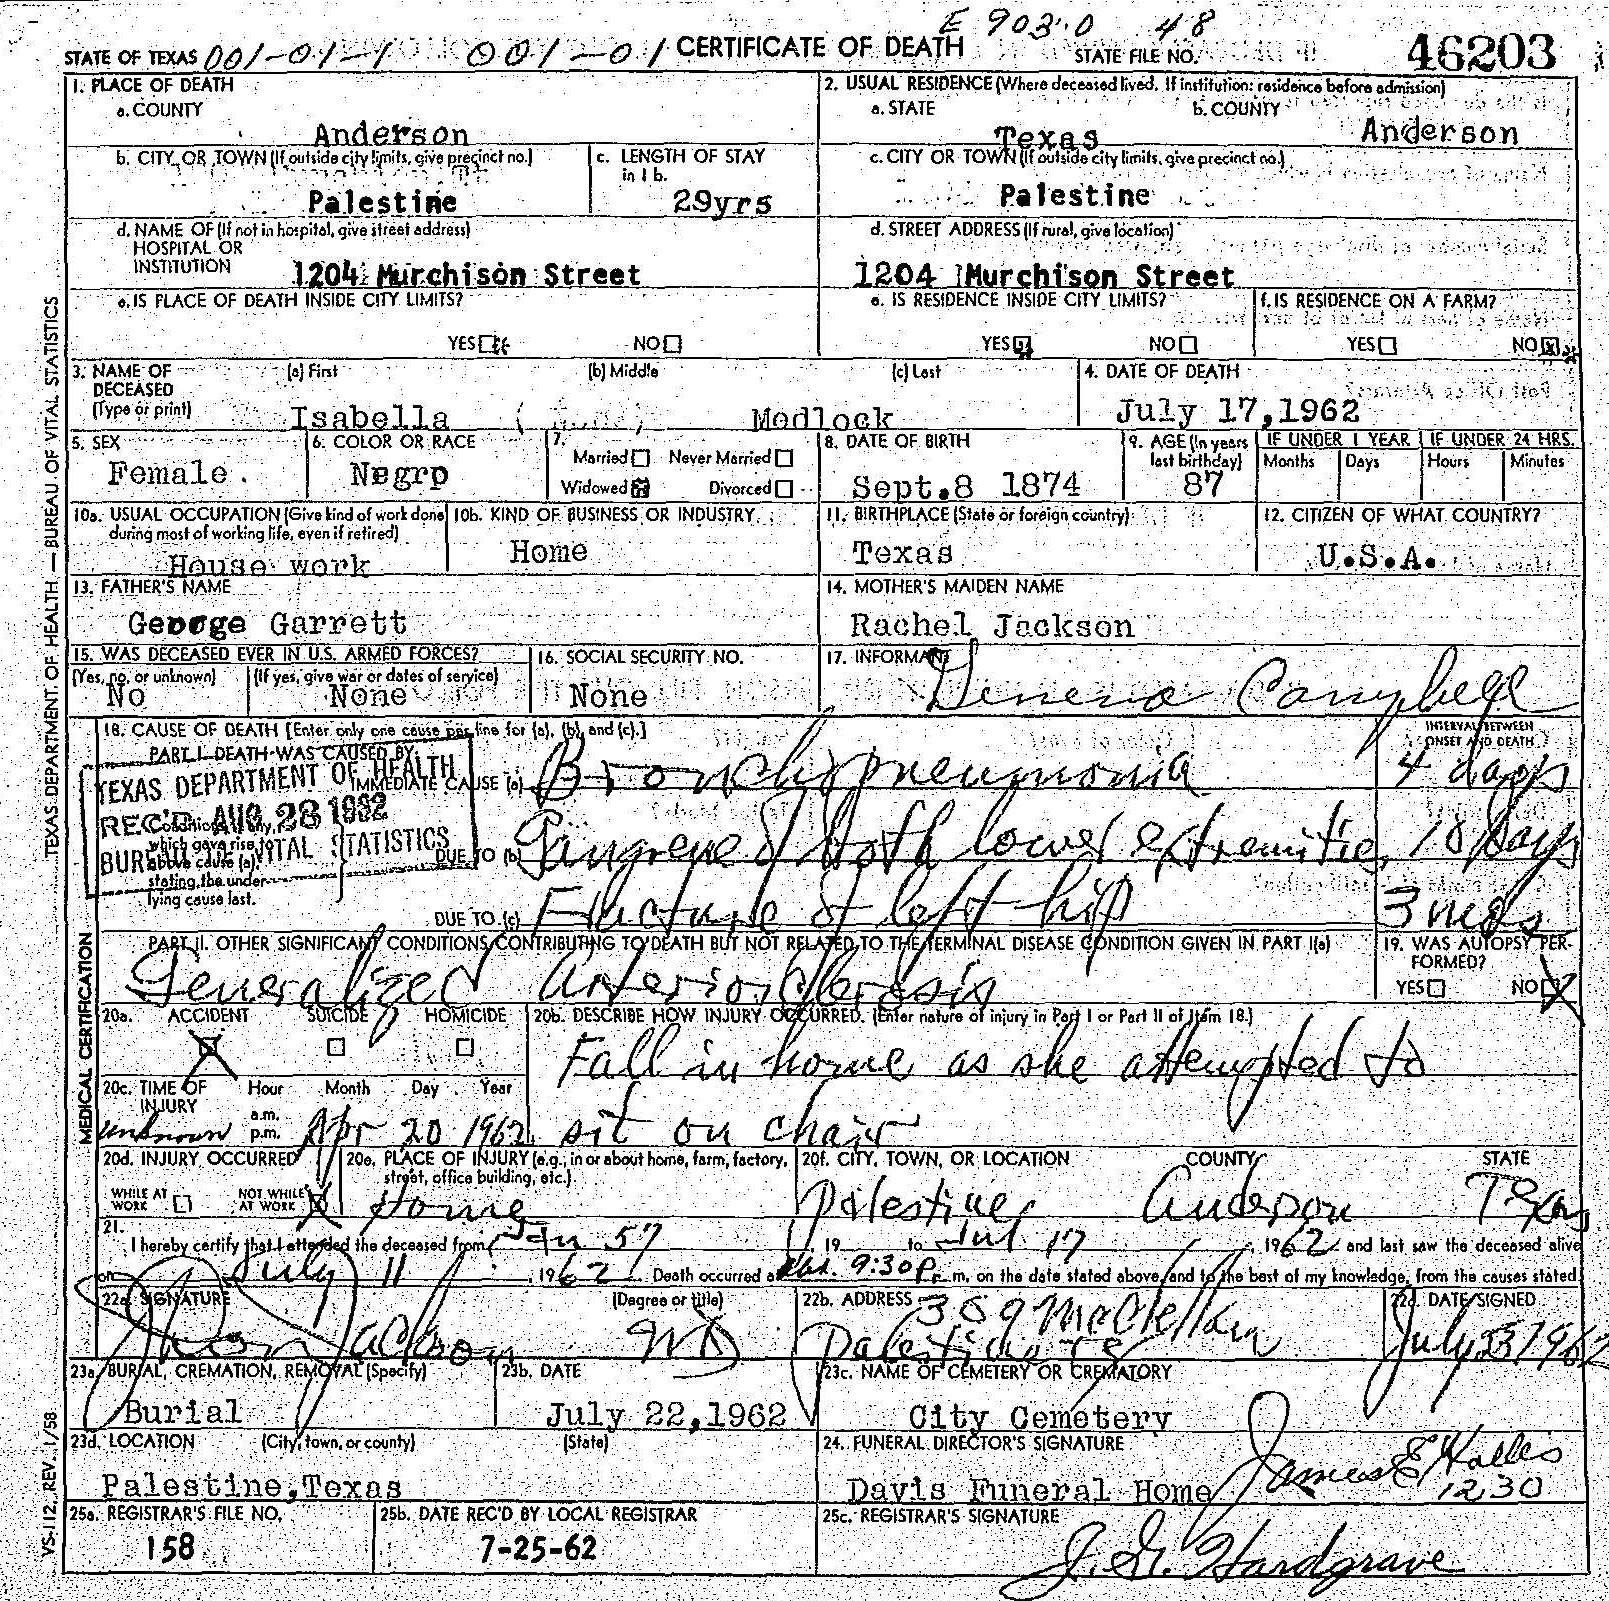 E 903.0 48
STATE OF TEXAS 001-01-1 001-01 CERTIFICATE OF DEATH STATE FILE NO. 46203
1. PLACE OF DEATH
a. COUNTY
Anderson
2. USUAL RESIDENCE (Where deceased lived. If institution: residence before admission)
a. STATE
Texas
b. COUNTY
Anderson
b. CITY OR TOWN (If outside city limits, give precinct no.)
Palestine
c. LENGTH OF STAY
in 1 b.
29yrs
c. CITY OR TOWN (If outside city limits, give precinct no.)
Palestine
d. NAME OF (If not in hospital, give street address)
HOSPITAL OR
INSTITUTION
1204 Murchison Street
d. STREET ADDRESS (If rural, give location)
1204 Murchison Street
e. IS PLACE OF DEATH INSIDE CITY LIMITS?
YES NO
e. IS RESIDENCE INSIDE CITY LIMITS?
YES NO
f. IS RESIDENCE ON A FARM?
YES NO
3. NAME OF
DECEASED
(Type or print)
(a) First (b) Middle (c) Last
Isabella (None) Medlock
4. DATE OF DEATH
July 17,1962
5. SEX
Female.
6. COLOR OR RACE
Negrp
7.
Married Never Married
Widowed Divorced
8. DATE OF BIRTH
Sept.8 1874
9. AGE (In years
last birthday)
87
IF UNDER 1 YEAR
Months Days
IF UNDER 24 HRS.
Hours Minutes
10a. USUAL OCCUPATION (Give kind of work done
during most of working life, even if retired)
House work
10b. KIND OF BUSINESS OR INDUSTRY
Home
11. BIRTHPLACE (State or foreign country)
Texas
12. CITIZEN OF WHAT COUNTRY?
U.S.A.
13. FATHER'S NAME
George Garrett
14. MOTHER'S MAIDEN NAME
Rachel Jackson
15. WAS DECEASED EVER IN U.S. ARMED FORCES?
(Yes, no, or unknown) (If yes, give war or dates of service)
No None
16. SOCIAL SECURITY NO.
None
17. INFORMANT
Campbell
18. CAUSE OF DEATH [Enter only one cause per line for (a), (b), and (c).]
INTERVAL BETWEEN
ONSET AND DEATH
PART I. DEATH WAS CAUSED BY:
IMMEDIATE CAUSE (a) Bronchopneumonia 4 days
TEXAS DEPARTMENT OF HEALTH
REC'D AUG 28 1962
BUREAU OF VITAL STATISTICS
Conditions, if any,
which gave rise to
above cause (a),
stating the under-
lying cause last.
DUE TO (b) Gangrene of both lower extremities 10 days
DUE TO (c) Fracture of left hip 3 mos
PART II. OTHER SIGNIFICANT CONDITIONS CONTRIBUTING TO DEATH BUT NOT RELATED TO THE TERMINAL DISEASE CONDITION GIVEN IN PART I(a)
Generalized arteriosclerosis
19. WAS AUTOPSY PER-
FORMED?
YES NO
20a. ACCIDENT SUICIDE HOMICIDE
20b. DESCRIBE HOW INJURY OCCURRED. (Enter nature of injury in Part I or Part II of Item 18.)
Fall in home as she attempted to
sit on chair
20c. TIME OF
INJURY
Hour Month Day Year
a.m.
p.m.
unknown Apr 20 1962
20d. INJURY OCCURRED
WHILE AT
WORK
NOT WHILE
AT WORK
20e. PLACE OF INJURY (e.g., in or about home, farm, factory,
street, office building, etc.)
Home
20f. CITY, TOWN, OR LOCATION COUNTY STATE
Palestine Anderson Texas
21.
I hereby certify that I attended the deceased from Jan 57 19 to Jul 17, 1962 and last saw the deceased alive
on July 11, 1962. Death occurred at 9:30 P. m. on the date stated above, and to the best of my knowledge, from the causes stated.
22a. SIGNATURE (Degree or title)
Jackson MD
22b. ADDRESS
309 McClellan
Palestine
22c. DATE SIGNED
July 23 1962
23a. BURIAL, CREMATION, REMOVAL (Specify)
Burial
23b. DATE
July 22,1962
23c. NAME OF CEMETERY OR CREMATORY
City Cemetery
23d. LOCATION (City, town, or county) (State)
Palestine,Texas
24. FUNERAL DIRECTOR'S SIGNATURE
Davis Funeral Home James E Halles
1230
25a. REGISTRAR'S FILE NO.
158
25b. DATE REC'D BY LOCAL REGISTRAR
7-25-62
25c. REGISTRAR'S SIGNATURE
J. G. Hardgrave
TEXAS DEPARTMENT OF HEALTH — BUREAU OF VITAL STATISTICS
MEDICAL CERTIFICATION
VS-112, REV. 1/58